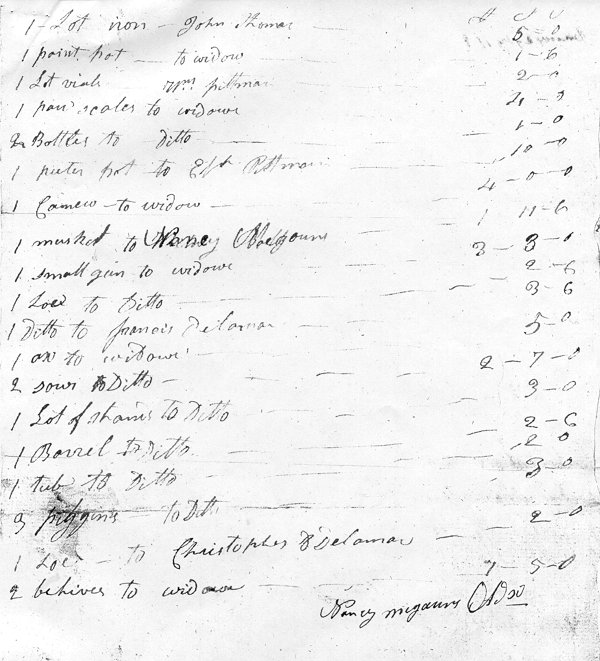 1 Lot iron – John Thomas — 5 – 0
1 paint pot — to widow — 1–6
1 Lot vials Wm pittman — 2–0
1 pair scales to widow — 4–0
2 Bottles to Ditto — 1–0
1 pot to Pittman — 10–0
1 to widow — 4–0–0
1 musket to Nancy — 1 11–6
1 small gun to widow — 3–3–0
1 Loo to Ditto — 2–6
1 Ditto to francis Delamar — 3–6
1 ax to widow — 5–0
2 sows to Ditto — 2–7–0
1 Lot of to Ditto — 3–0
1 Barrel to Ditto — 2–6
1 tub to Ditto — 2 0
3 piggins to Ditto — 3–0
1 — to Christopher D Delamar — 2–0
2 behives to widow — 7–5–0
Nancy mcgauns